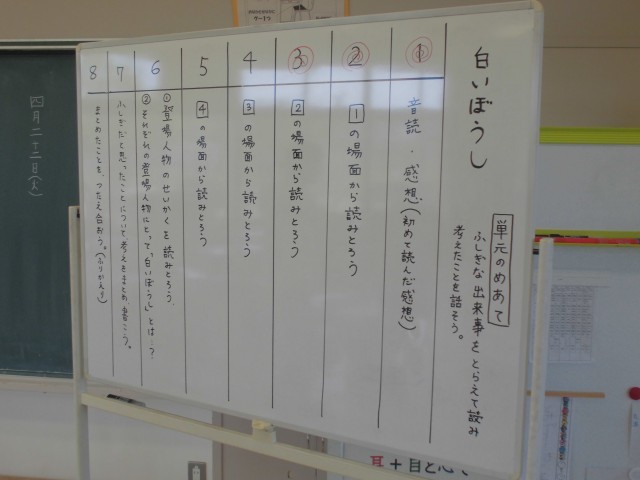 白いぼうし
単元のめあて
ふしぎな出来事をとらえて読み
考えたことを話そう。
1
音読・感想(初めて読んだ感想)
2
1の場面から読みとろう
3
2の場面から読みとろう
4
3の場面から読みとろう
5
4の場面から読みとろう
6
①登場人物のせいかくを読みとろう.
②それぞれの登場人物にとって「白いぼうし」とは…?
7
ふしぎだと思ったことについて考えをまとめ、書こう。
8
まとめたことを、つたえ合おう。(ふりかえり)
四月二十二日(火)
耳+目と心で